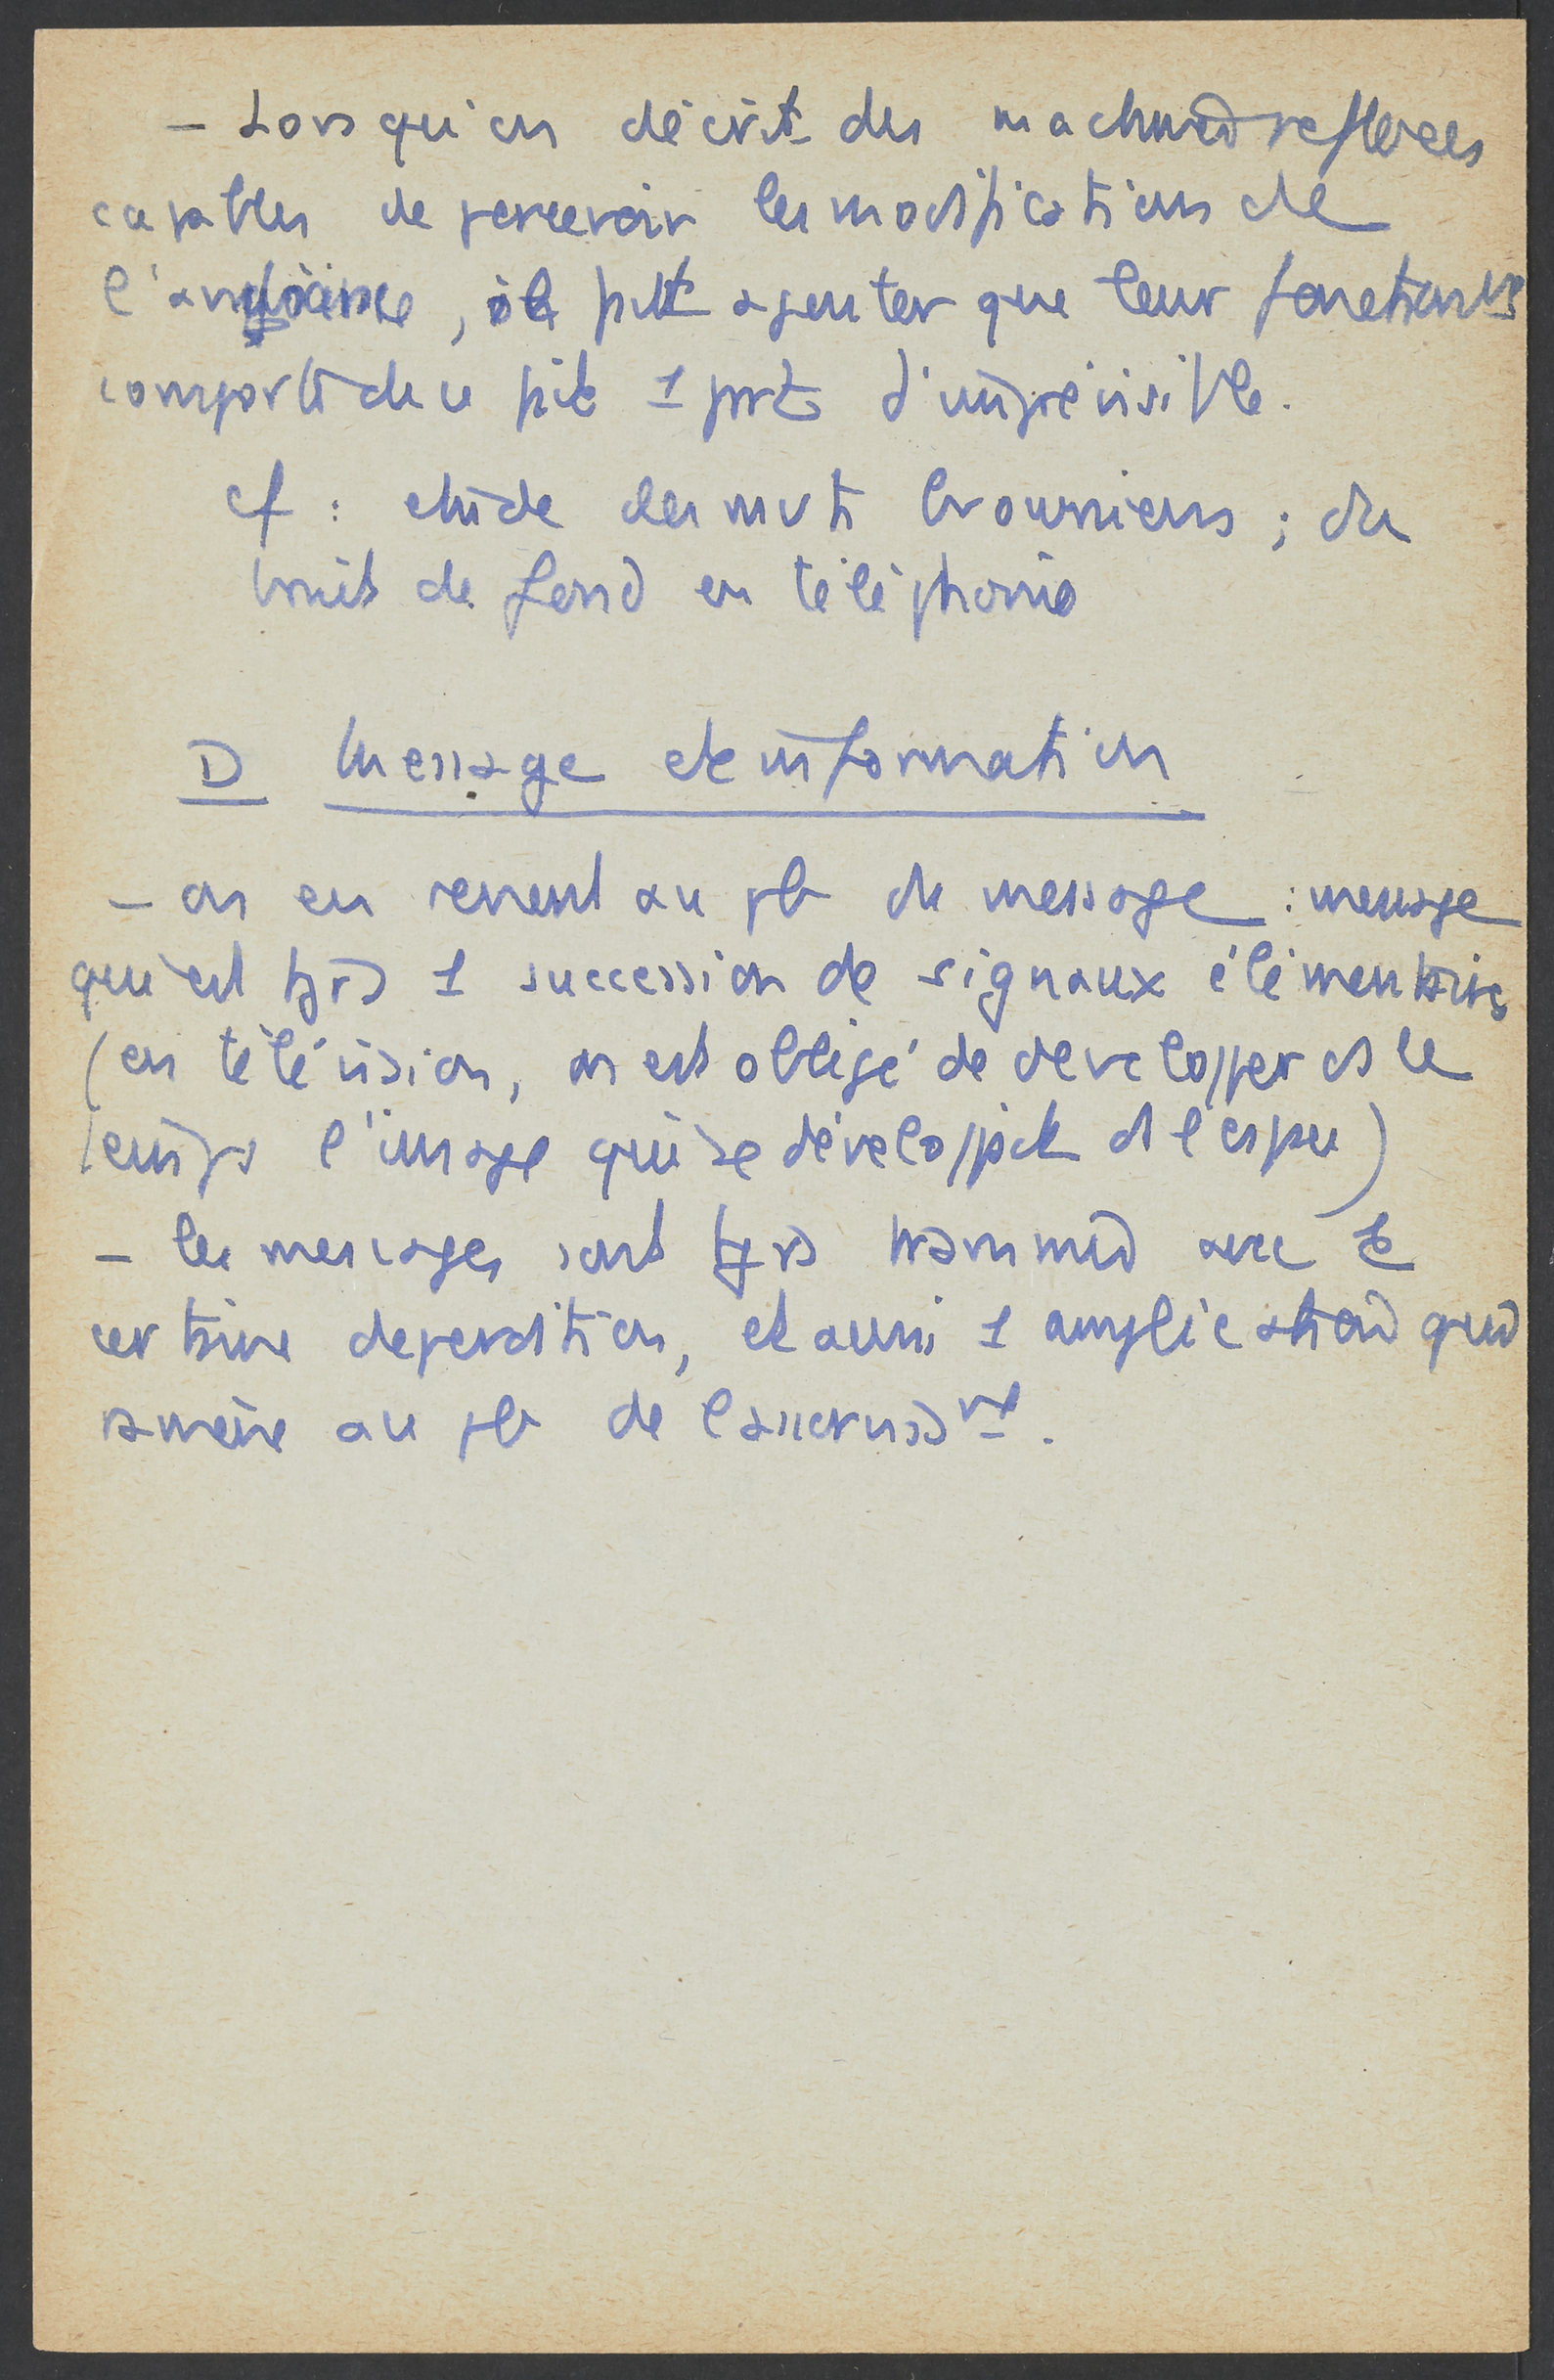 - Lorsqu'on décrit des machines reflexes
capables de percevoir les modifications de
l'ambiance, il ajouter que leur
de ce 1 d'imprévisible.
cf : etude des mvts browniens ; du
bruit de fond en téléphonie
D Message et information
- on en revient au pb du message : message
qui est tjrs 1 succession de signaux élémentaires
(en télévision, on est obligé de developper ds le
temps l'image qui se développe ds l'espace)
- les messages sont tjrs transmis avec
certaine deperdition, et aussi 1 amplification qui
ramène au pb de l'asservisst.